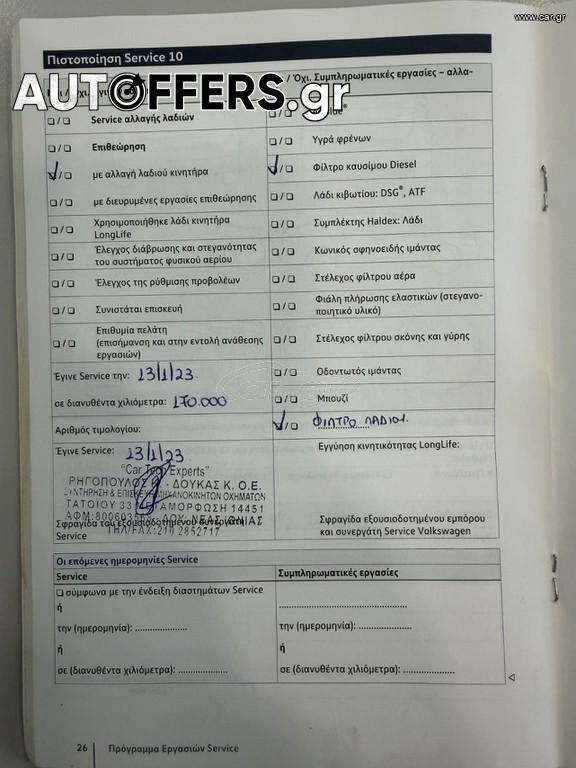 www.car.gr
Πιστοποίηση Service 10
/ Όχι. Συμπληρωματικές εργασίες – αλλα-
AUTOFFERS.gr
❏ / ❏ Service αλλαγής λαδιών
❏ / ❏ Επιθεώρηση
✓/ ❏ με αλλαγή λαδιού κινητήρα
❏ / ❏ με διευρυμένες εργασίες επιθεώρησης
❏ / ❏ Χρησιμοποιήθηκε λάδι κινητήρα
LongLife
❏ / ❏ Έλεγχος διάβρωσης και στεγανότητας
του συστήματος φυσικού αερίου
❏ / ❏ Έλεγχος της ρύθμισης προβολέων
❏ / ❏ Συνιστάται επισκευή
❏ / ❏ Επιθυμία πελάτη
(επισήμανση και στην εντολή ανάθεσης
εργασιών)
Έγινε Service την: 13/1/23.
σε διανυθέντα χιλιόμετρα: 170.000
Αριθμός τιμολογίου:
Έγινε Service: 13/1/23
"Car Tech Experts"
ΡΗΓΟΠΟΥΛΟΣ - ΔΟΥΚΑΣ Κ. Ο.Ε.
ΣΥΝΤΗΡΗΣΗ & ΕΠΙΣΚΕΥΗ ΜΗΧΑΝΟΚΙΝΗΤΩΝ ΟΧΗΜΑΤΩΝ
ΤΑΤΟΪΟΥ 33 ΜΕΤΑΜΟΡΦΩΣΗ 14451
ΔΟΥ: ΝΕΑΣ ΙΩΝΙΑΣ
ΤΗΛ/FAX: 210 2852717
Σφραγίδα του εξουσιοδοτημένου συνεργάτη
Service
❏ / ❏
❏ / ❏ Υγρά φρένων
✓/ ❏ Φίλτρο καυσίμου Diesel
❏ / ❏ Λάδι κιβωτίου: DSG®, ATF
❏ / ❏ Συμπλέκτης Haldex: Λάδι
❏ / ❏ Κωνικός σφηνοειδής ιμάντας
❏ / ❏ Στέλεχος φίλτρου αέρα
❏ / ❏ Φιάλη πλήρωσης ελαστικών (στεγανο-
ποιητικό υλικό)
❏ / ❏ Στέλεχος φίλτρου σκόνης και γύρης
❏ / ❏ Οδοντωτός ιμάντας
❏ / ❏ Μπουζί
✓/ ❏ ΦΙΛΤΡΟ ΛΑΔΙΟΥ
Εγγύηση κινητικότητας LongLife:
Σφραγίδα εξουσιοδοτημένου εμπόρου
και συνεργάτη Service Volkswagen
Οι επόμενες ημερομηνίες Service
Service
❏ σύμφωνα με την ένδειξη διαστημάτων Service
ή
την (ημερομηνία): ....................
ή
σε (διανυθέντα χιλιόμετρα): ...................
Συμπληρωματικές εργασίες
..................................................
την (ημερομηνία): ....................
ή
σε (διανυθέντα χιλιόμετρα): ....................
26 Πρόγραμμα Εργασιών Service